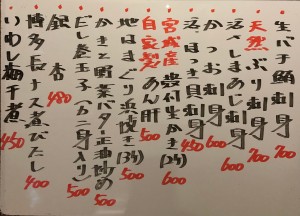 生バチ鮪刺身 700
天然ぶり刺身 700
活〆しまあじ刺身 600
かつお刺身 600
つぶ貝刺身 450
宮城産殻付生かき(2ヶ) 600
自家製あん肝 500
地はまぐり浜焼き(3ヶ) 500
かきと葱バター正油炒め 500
だし巻玉子(しらす入り) 500
銀杏 480
博多長ナス煮びたし 400
いわし梅干煮 450